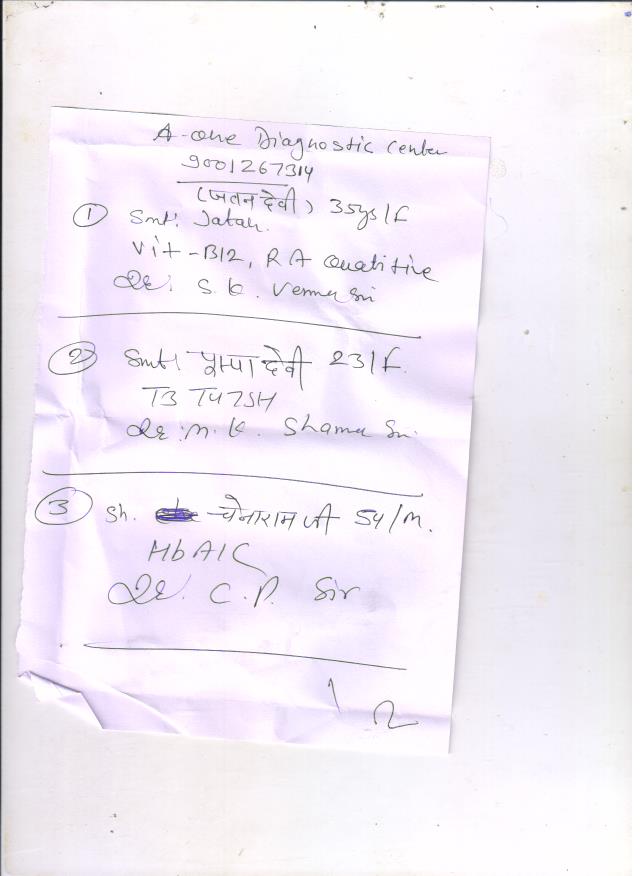 A-one Diagnostic Center
9001267314
(जतन देवी) 35ys/F
① Smt. Jatan
Vit-B12, RA Quatitive
Dr. S.K. Verma Sir
② Smt. पुष्पा देवी 23/F
T3 T4 TSH
Dr. M.K. Sharma Sir
③ Sh. चेनाराम जी 54/M.
HbA1C
Dr. C.P. Sir